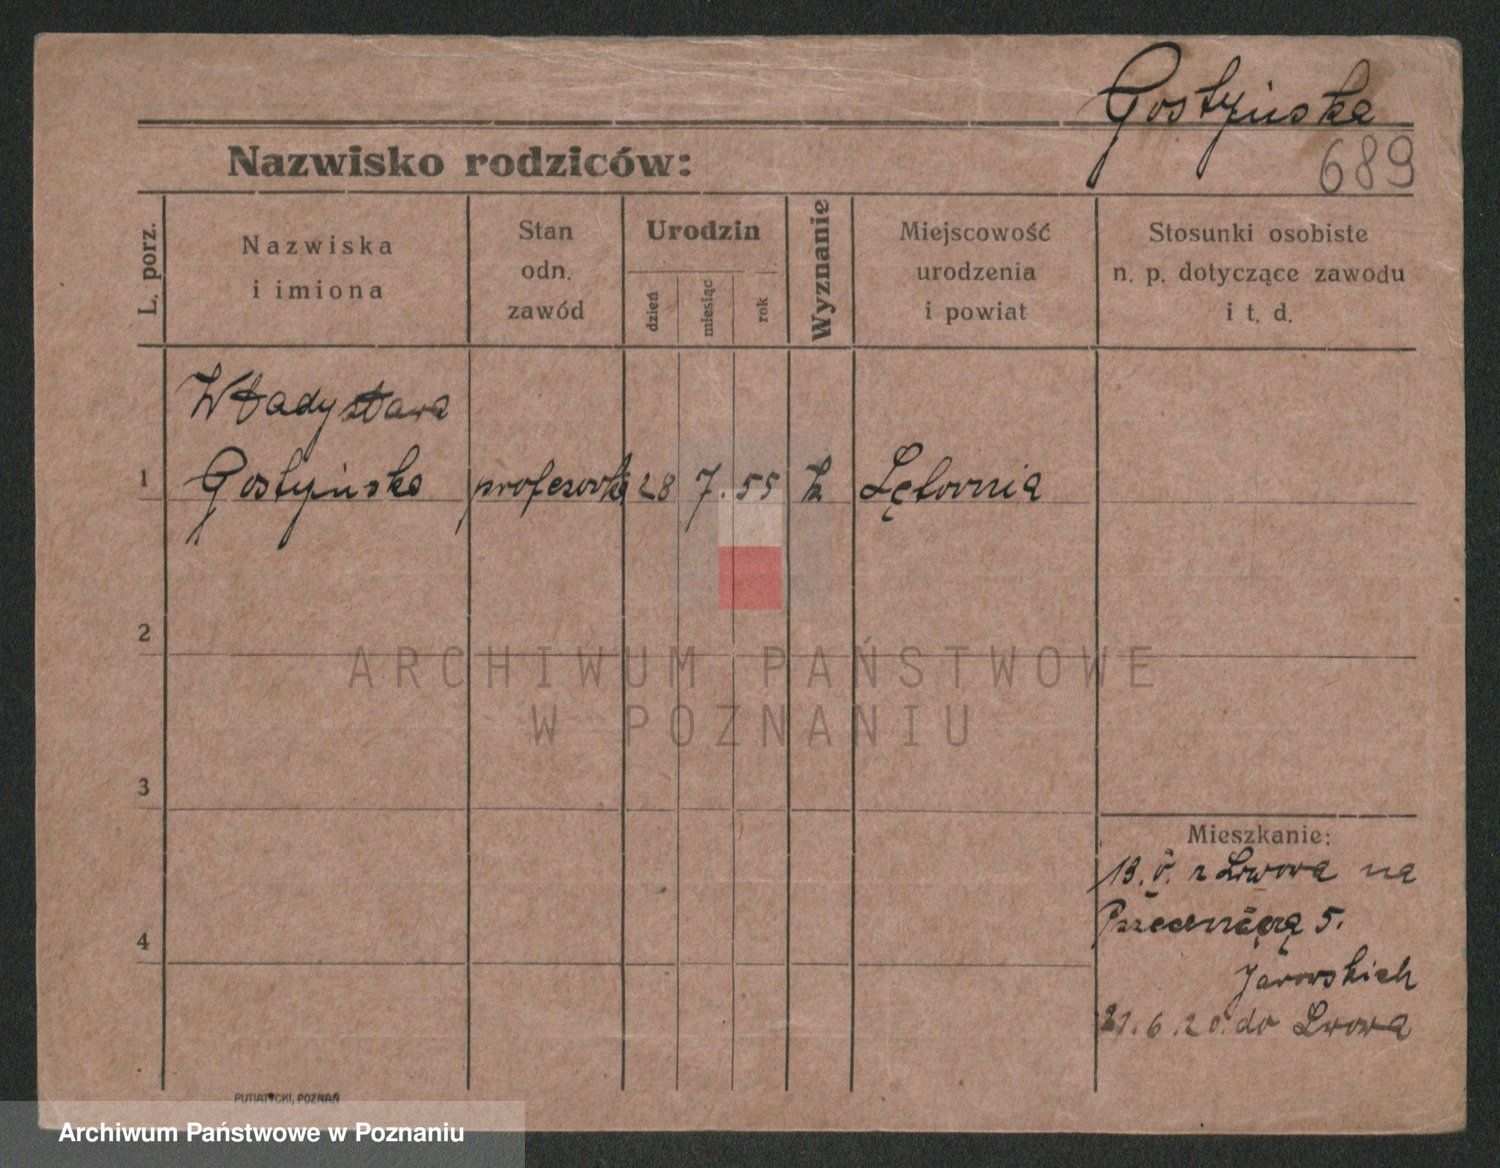 Gostyńska
Nazwisko rodziców:
689
L. porz.
Nazwiska
i imiona
Stan
odn.
zawód
Urodzin
dzień
miesiąc
rok
Wyznanie
Miejscowość
urodzenia
i powiat
Stosunki osobiste
n. p. dotyczące zawodu
i t. d.
Władysława
1 Gostyńska profesorka 28 7. 55 Łętownia
2
3
4
ARCHIWUM PAŃSTWOWE
W POZNANIU
Mieszkanie:
13. z Lwowa na
5.
Jaworskich
21. 6. 20. do Lwowa
PUTIATYCKI, POZNAŃ
Archiwum Państwowe w Poznaniu